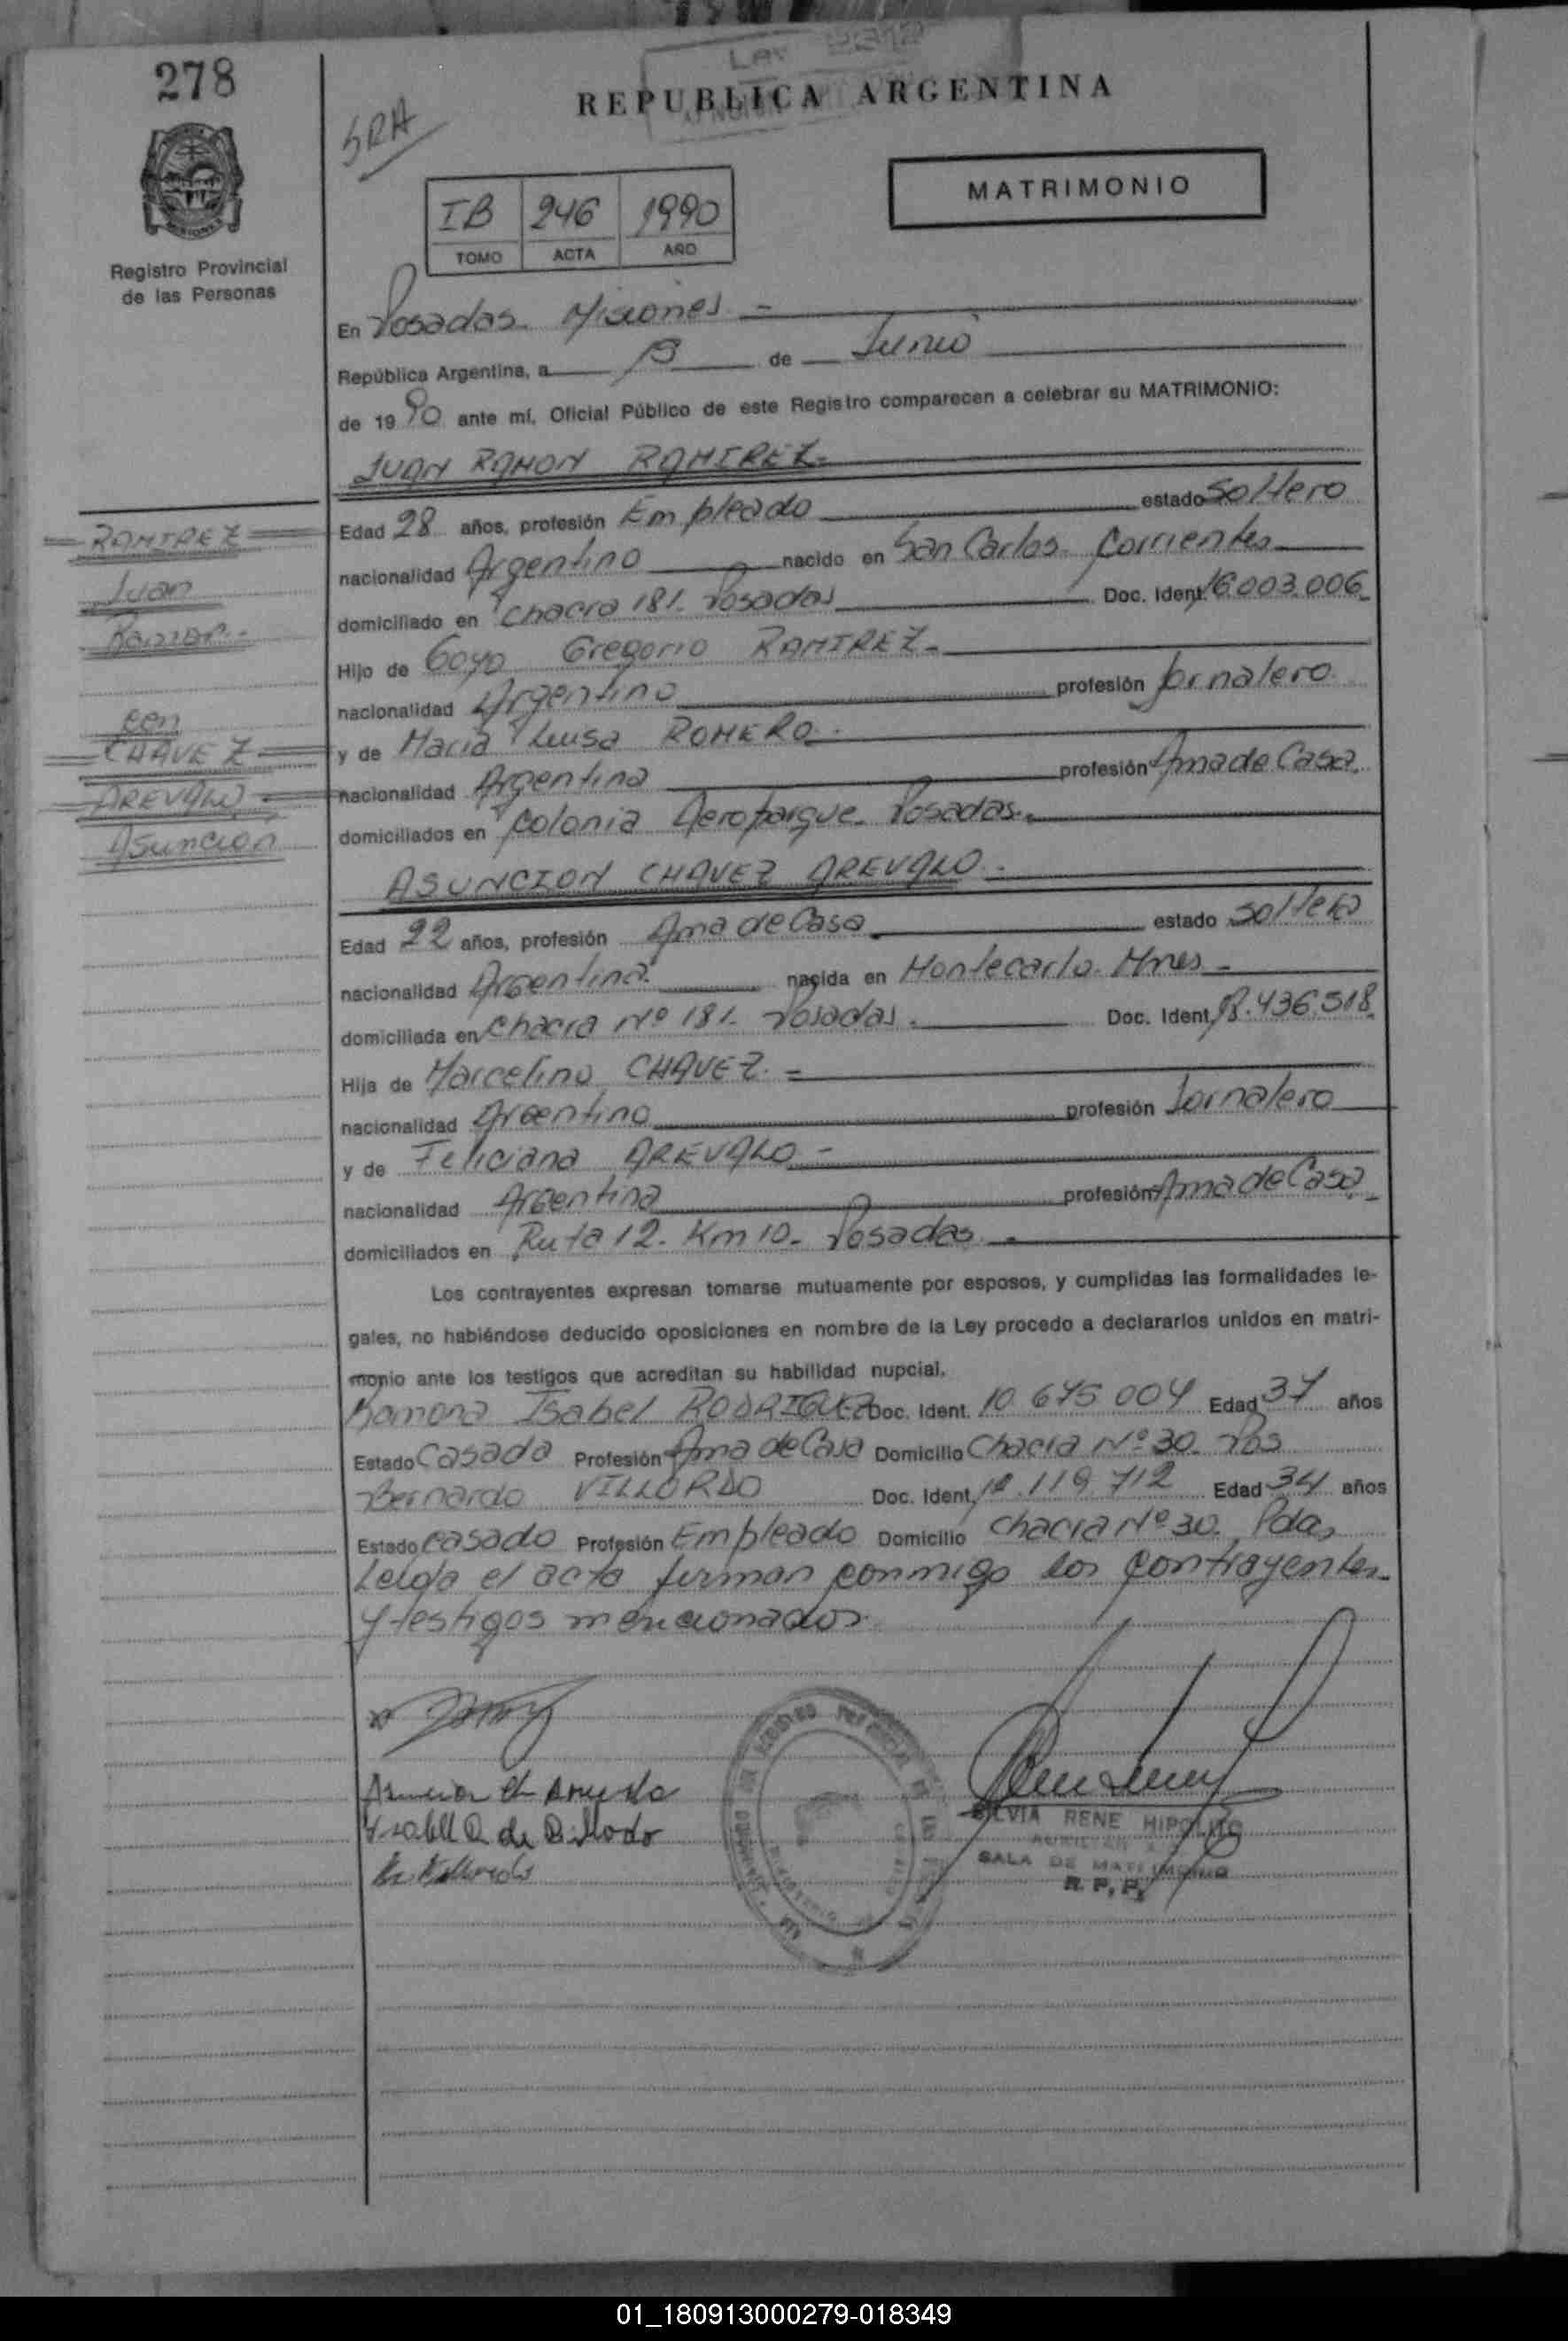 278
REPUBLICA ARGENTINA
SRA
MATRIMONIO
IB 246 1990
TOMO ACTA AÑO
Registro Provincial
de las Personas
En Posadas. Misiones
República Argentina, a de Junio
de 1990 ante mí, Oficial Público de este Registro comparecen a celebrar su MATRIMONIO:
JUAN RAMON RAMIREZ
Edad 28 años, profesión Empleado estado soltero
nacionalidad Argentino nacido en San Carlos Corrientes
domiciliado en chacra 181. Posadas Doc. Ident. 16.003.006
Hijo de Goyo Gregorio RAMIREZ
nacionalidad Argentino profesión Jornalero
y de Maria Luisa ROMERO
nacionalidad Argentina profesión Ama de Casa
domiciliados en Colonia Aeroparque. Posadas.
ASUNCION CHAVEZ AREVALO
Edad 22 años, profesión Ama de Casa estado soltera
nacionalidad Argentina nacida en Montecarlo. Mnes
domiciliada en chacra Nº 181. Posadas. Doc. Ident. 18.436.518
Hija de Marcelino CHAVEZ.
nacionalidad Argentino profesión Jornalero
y de Feliciana AREVALO
nacionalidad Argentina profesión Ama de Casa
domiciliados en Ruta 12. Km 10. Posadas
Los contrayentes expresan tomarse mutuamente por esposos, y cumplidas las formalidades le-
gales, no habiéndose deducido oposiciones en nombre de la Ley procedo a declararlos unidos en matri-
monio ante los testigos que acreditan su habilidad nupcial.
Ramona Isabel RODRIGUEZ Doc. Ident. 10.675.004 Edad 37 años
Estado Casada Profesión Ama de Casa Domicilio Chacra Nº 30. Pos
Bernardo VILLORDO Doc. Ident. 12.119.712 Edad 34 años
Estado casado Profesión Empleado Domicilio chacra Nº 30. Pdas
Leida el acta firman conmigo los contrayentes
y testigos mencionados.
RAMIREZ
Juan
Ramon
con
CHAVEZ
AREVALO
Asuncion
SILVIA RENE HIPOLITO
SALA DE MATRIMONIO
R. P. P.
01_180913000279-018349